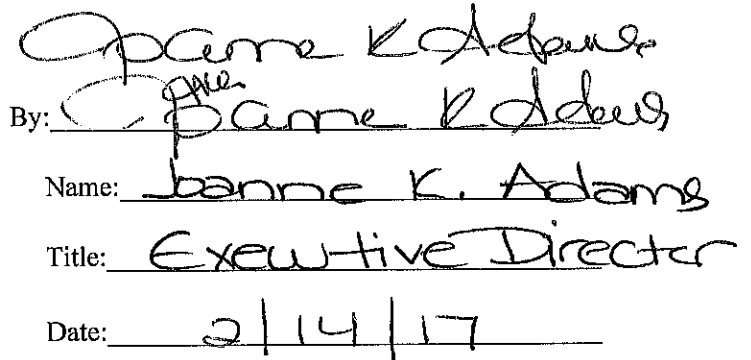 Joanne K Adams
By: Joanne K Adams
Name: Joanne K. Adams
Title: Executive Director
Date: 2/14/17